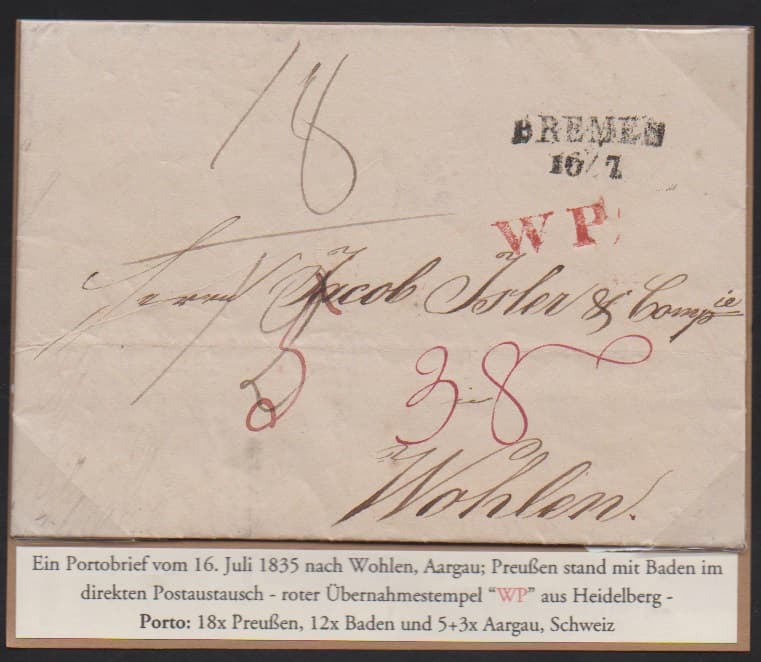 18
BREMEN
16/7
WP
Herrn Jacob Isler & Comp.ie
38
Wohlen.
Ein Portobrief vom 16. Juli 1835 nach Wohlen, Aargau; Preußen stand mit Baden im
direkten Postaustausch - roter Übernahmestempel "WP" aus Heidelberg -
Porto: 18x Preußen, 12x Baden und 5+3x Aargau, Schweiz